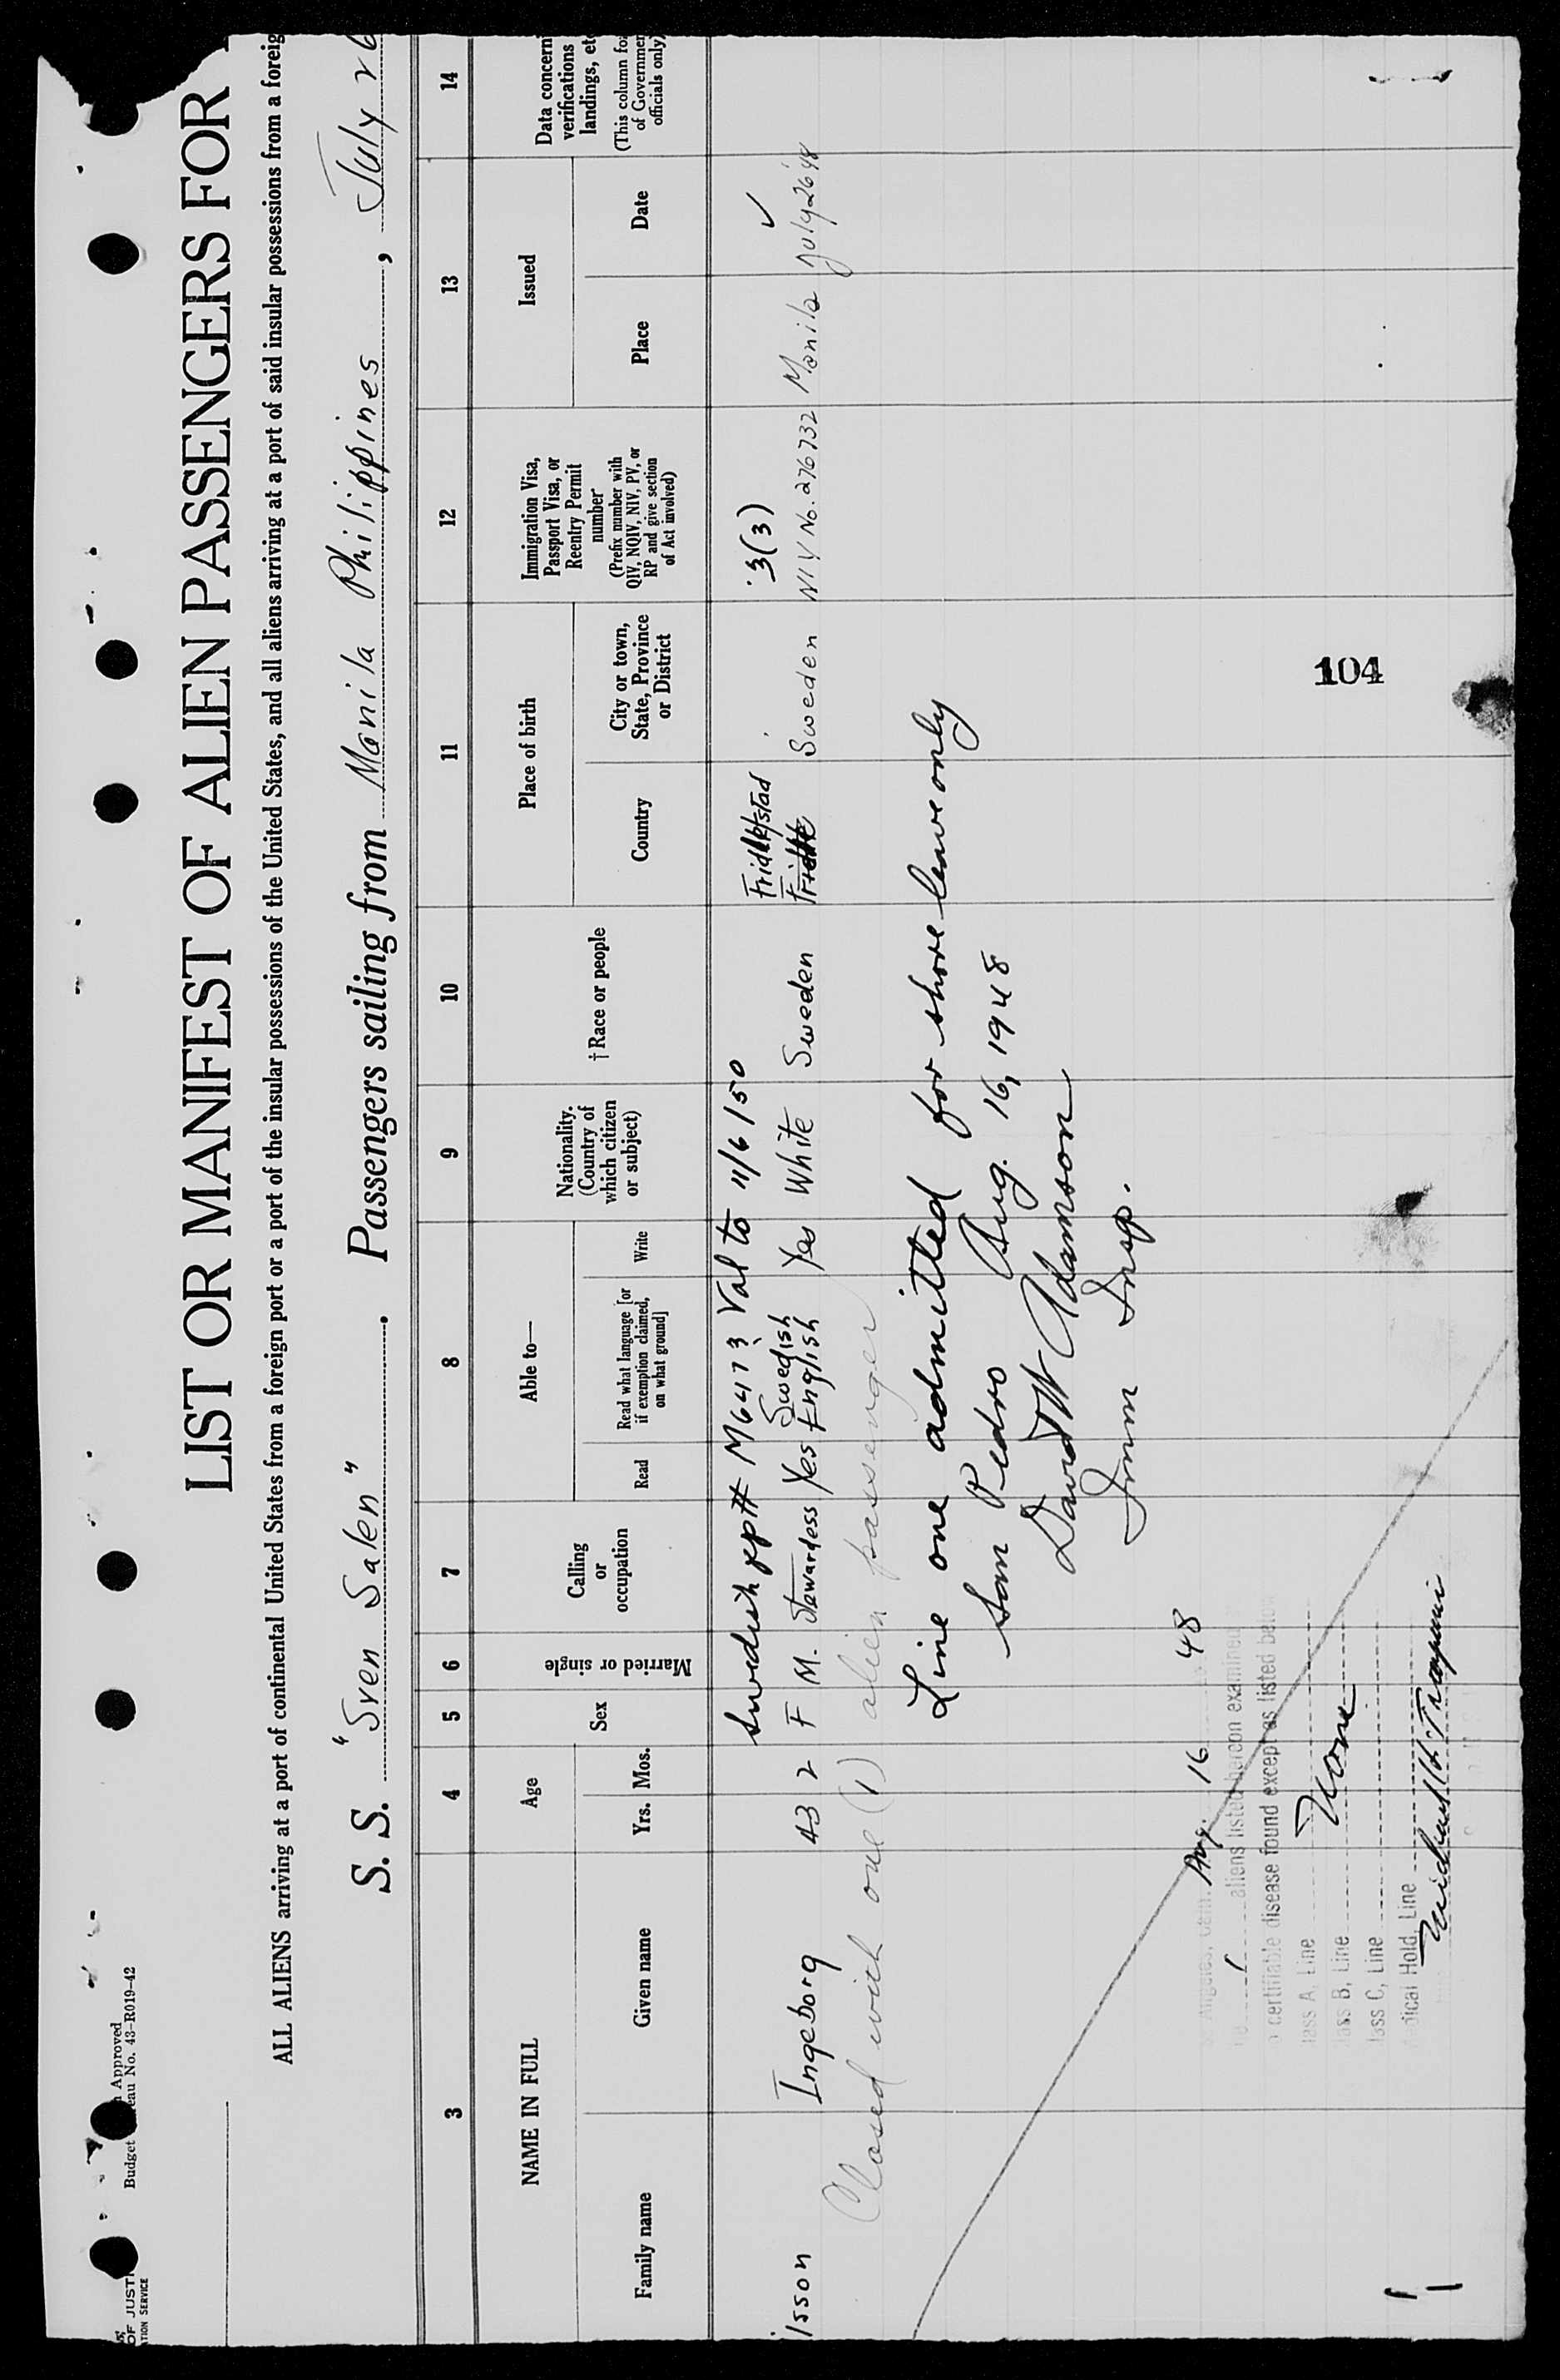 OF JUSTI
TION SERVICE
Approved
Budget eau No. 43-R019-42
LIST OR MANIFEST OF ALIEN PASSENGERS FOR
ALL ALIENS arriving at a port of continental United States from a foreign port or a port of the insular possessions of the United States, and all aliens arriving at a port of said insular possessions from a foreig
S. S. "Sven Salen". Passengers sailing from Manila Philippines, July 26
3 4 5 6 7 8 9 10 11 12 13 14
NAME IN FULL
Family name
Given name
Age
Yrs. Mos.
Sex
Married or single
Calling
or
occupation
Able to—
Read
Read what language [or
if exemption claimed,
on what ground]
Write
Nationality.
(Country of
which citizen
or subject)
†Race or people
Place of birth
Country
City or town,
State, Province
or District
Immigration Visa,
Passport Visa, or
Reentry Permit
number
(Prefix number with
QIV, NQIV, NIV, PV, or
RP and give section
of Act involved)
Issued
Place
Date
Data concern
verifications
landings, et
(This column fo
of Governmen
officials only)
Swedish pp# M6473 Val to 11/6/50
3(3) ✓
Swedish
isson Ingeborg 43 2 F M. Stewardess Yes English Yes White Sweden Sweden NIV No. 276732 Manila July 26 48
Closed with one (1) alien passenger
Line one admitted for shore leave only
San Pedro Aug. 16, 1948
David W Adamson
Imm Insp.
104
Aug. 16 48
1 aliens listed hereon examined
certifiable disease found except as listed below
lass A, Line
None
lass B, Line
lass C, Line
dical Hold, Line